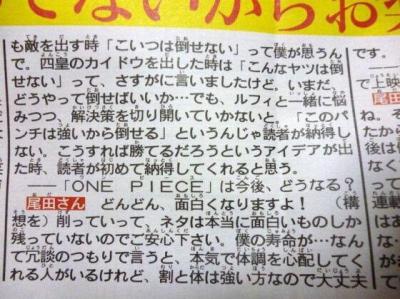 も敵を出す時「こいつは倒せない」って僕が思うん
で。四皇のカイドウを出した時は「こんなヤツは倒
せない」って、さすがに言いましたけど。いまだ、
どうやって倒せばいいか…でも、ルフィと一緒に悩
みつつ、解決策を切り開いていかないと。「このパ
ンチは強いから倒せる」というんじゃ読者が納得し
ない。こうすれば勝てるだろうというアイデアが出
た時、読者が初めて納得してくれると思う。
―「ONE PIECE」は今後、どうなる?
尾田さん どんどん、面白くなりますよ!(構
想を)削っていって、ネタは本当に面白いものしか
残っていないのでご安心下さい。僕の寿命が…なん
て冗談のつもりで言うと、本気で体調を心配してく
れる人がいるけれど、割と体は強い方なので大丈夫
です。